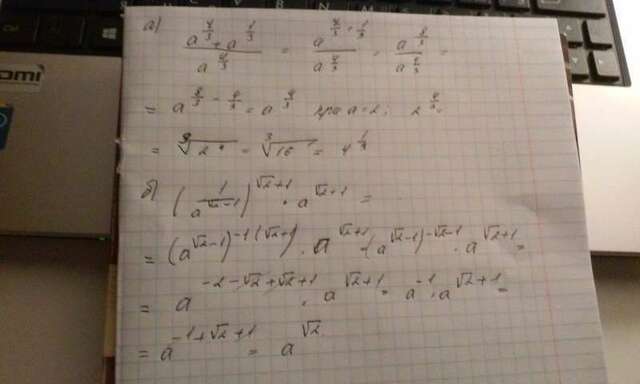 а) (a^{7/3} · a^{1/3}) / a^{4/3} = a^{7/3 + 1/3} / a^{4/3} = a^{8/3} / a^{4/3} =
= a^{8/3 - 4/3} = a^{4/3} при a=2; 2^{4/3} =
= ∛2⁴ = ∛16 = 4^{1/3}
б) (1 / a^{√2-1})^{√2+1} · a^{√2+1} =
= (a^{√2-1})^{-1(√2+1)} · a^{√2+1} = (a^{√2-1})^{-√2-1} · a^{√2+1} =
= a^{-2-√2+√2+1} · a^{√2+1} = a^{-1} · a^{√2+1} =
= a^{-1+√2+1} = a^{√2}